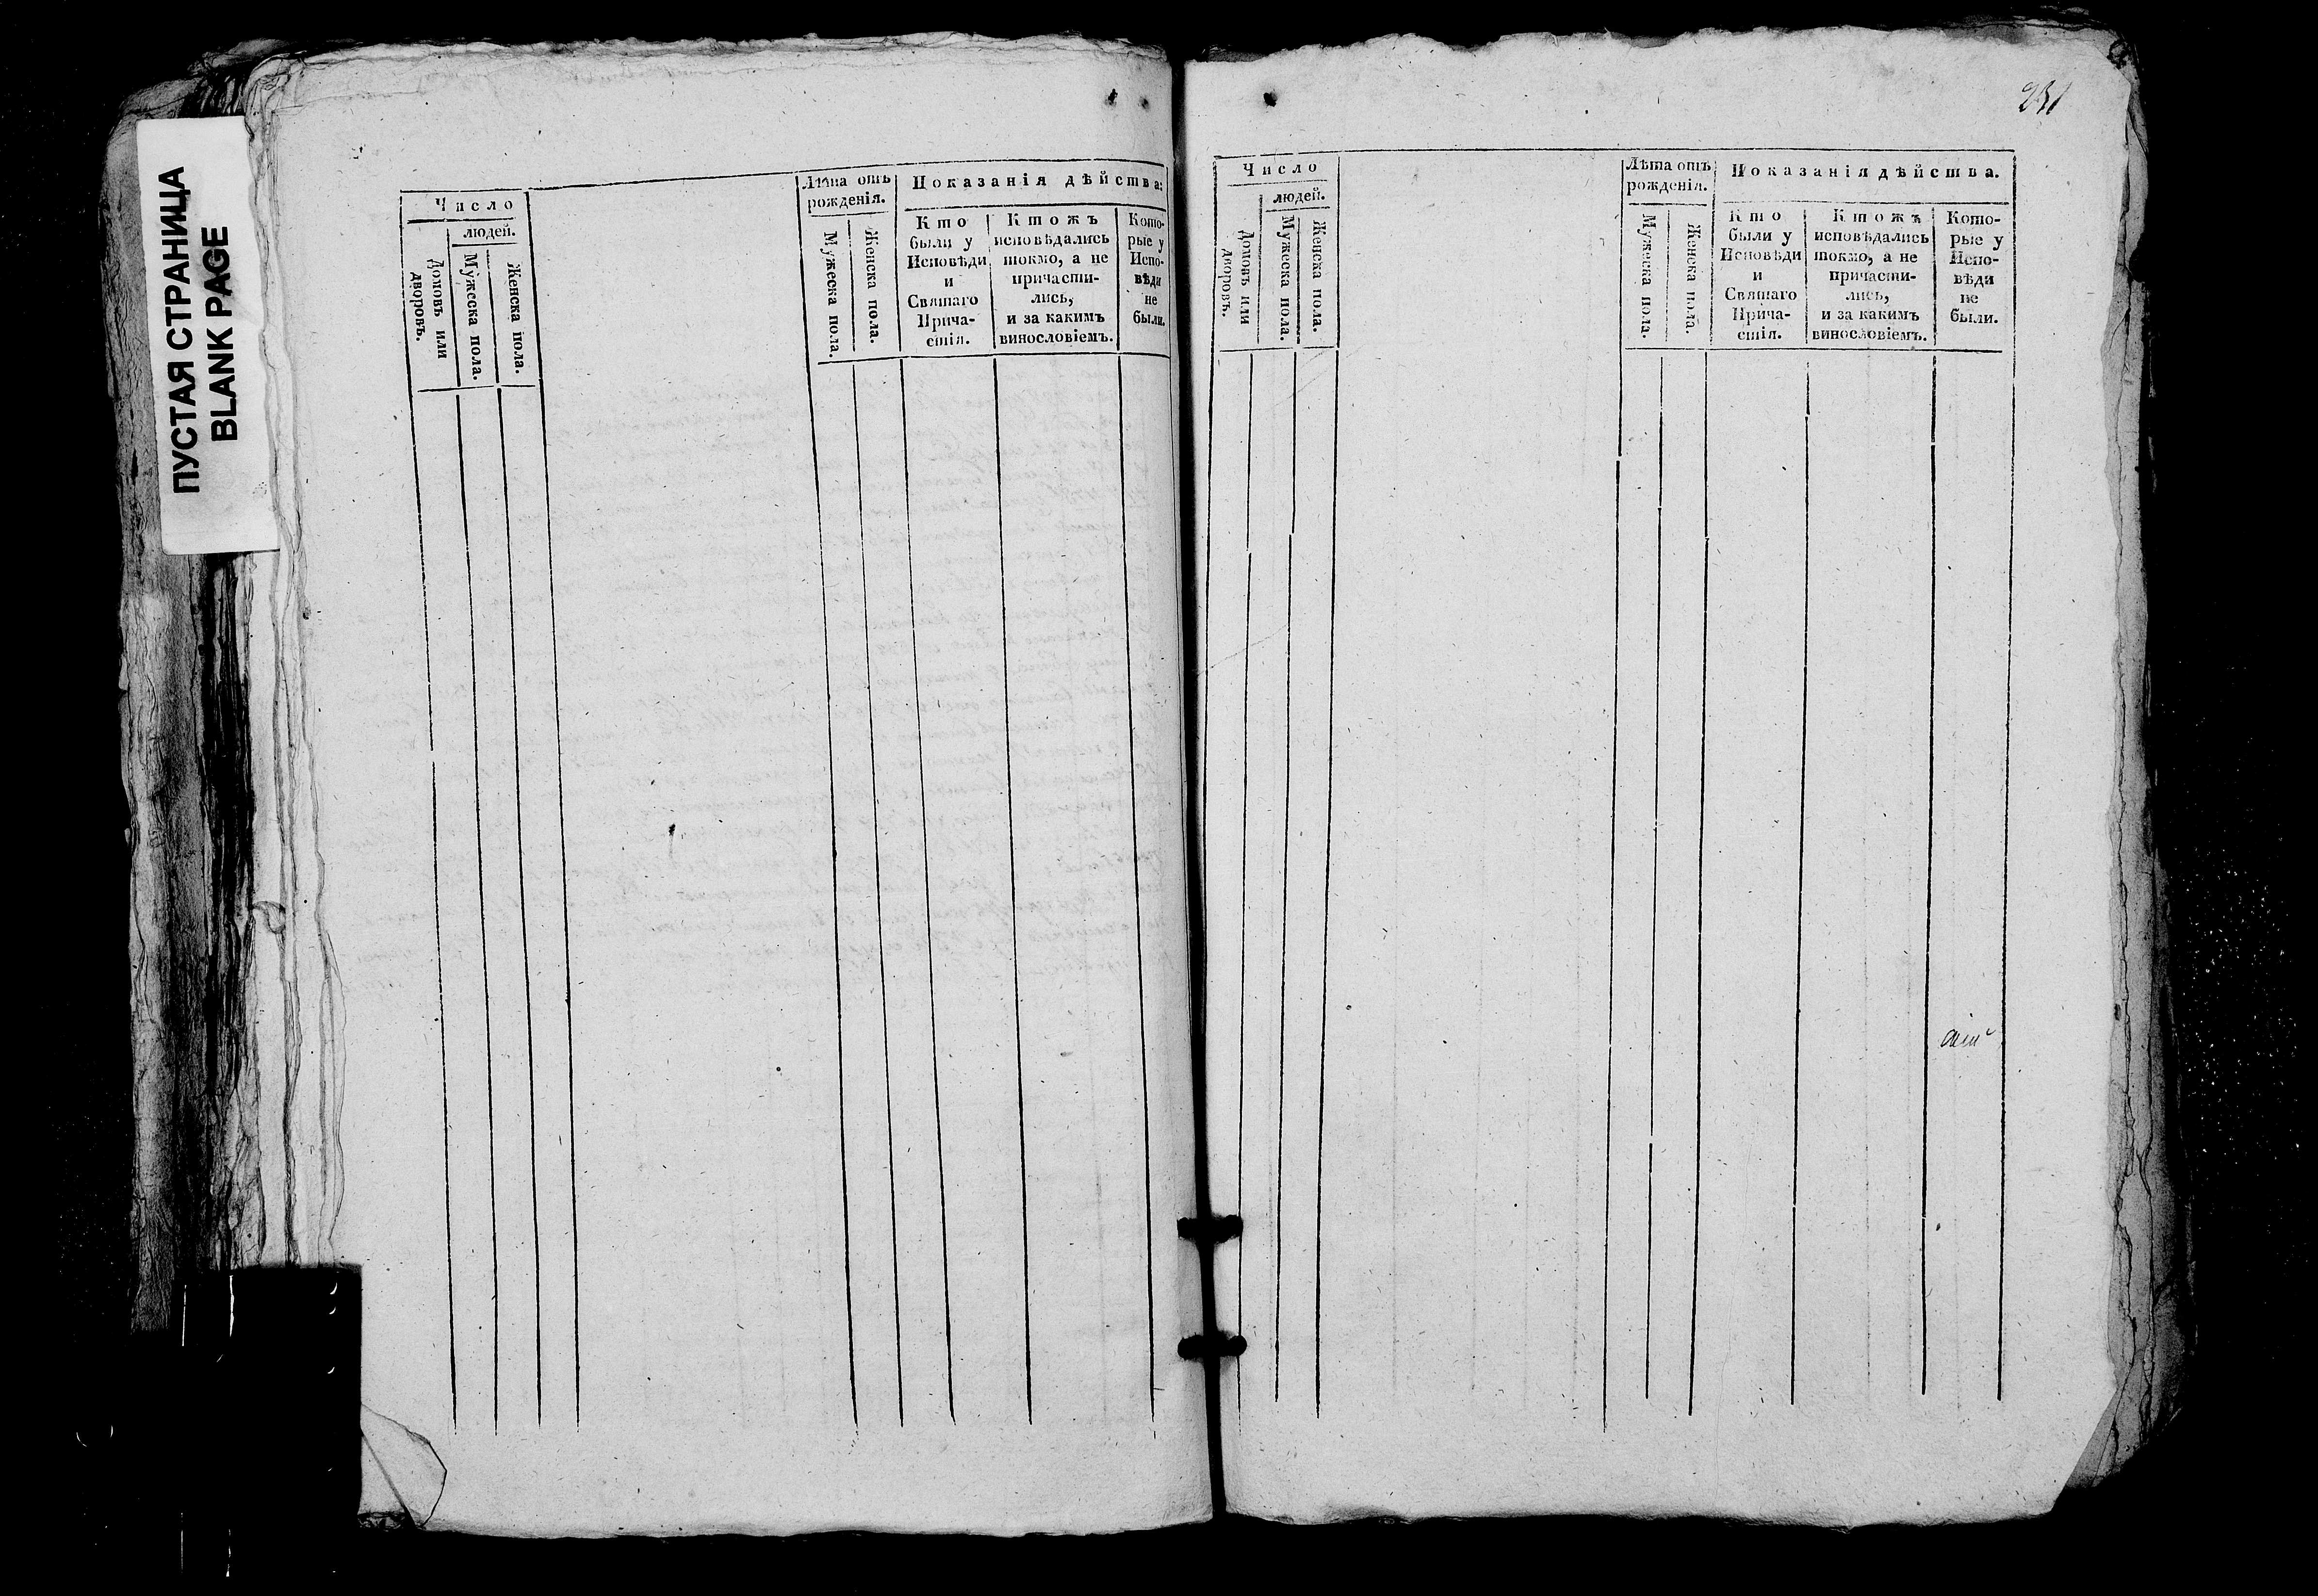 ПУСТАЯ СТРАНИЦА
BLANK PAGE
Число
людей.
Домовъ или
дворовъ.
Мужеска пола.
Женска пола.
Лѣта отъ
рожденія.
Мужеска пола.
Женска пола.
Показанія дѣйства:
Кто
были у
Исповѣди
и
Святаго
Прича-
стія.
Ктожъ
исповѣдались
токмо, а не
причасти-
лись,
и за какимъ
винословіемъ.
Кото-
рые у
Испо-
вѣди
не
были.
Число
людей.
Домовъ или
дворовъ.
Мужеска пола.
Женска пола.
Лѣта отъ
рожденія.
Мужеска пола.
Женска пола.
Показанія дѣйства.
Кто
были у
Исповѣди
и
Святаго
Прича-
стія.
Ктожъ
исповѣдались
токмо, а не
причасти-
лись,
и за какимъ
винословіемъ.
Кото-
рые у
Испо-
вѣди
не
были.